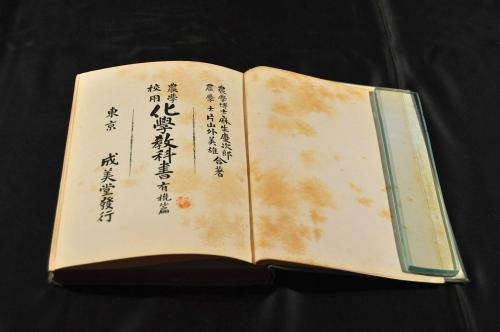 農學博士 麻生慶次郎
農學士 片山外美雄 合著
農學校用 化學教科書 有機篇
東京 成美堂發行